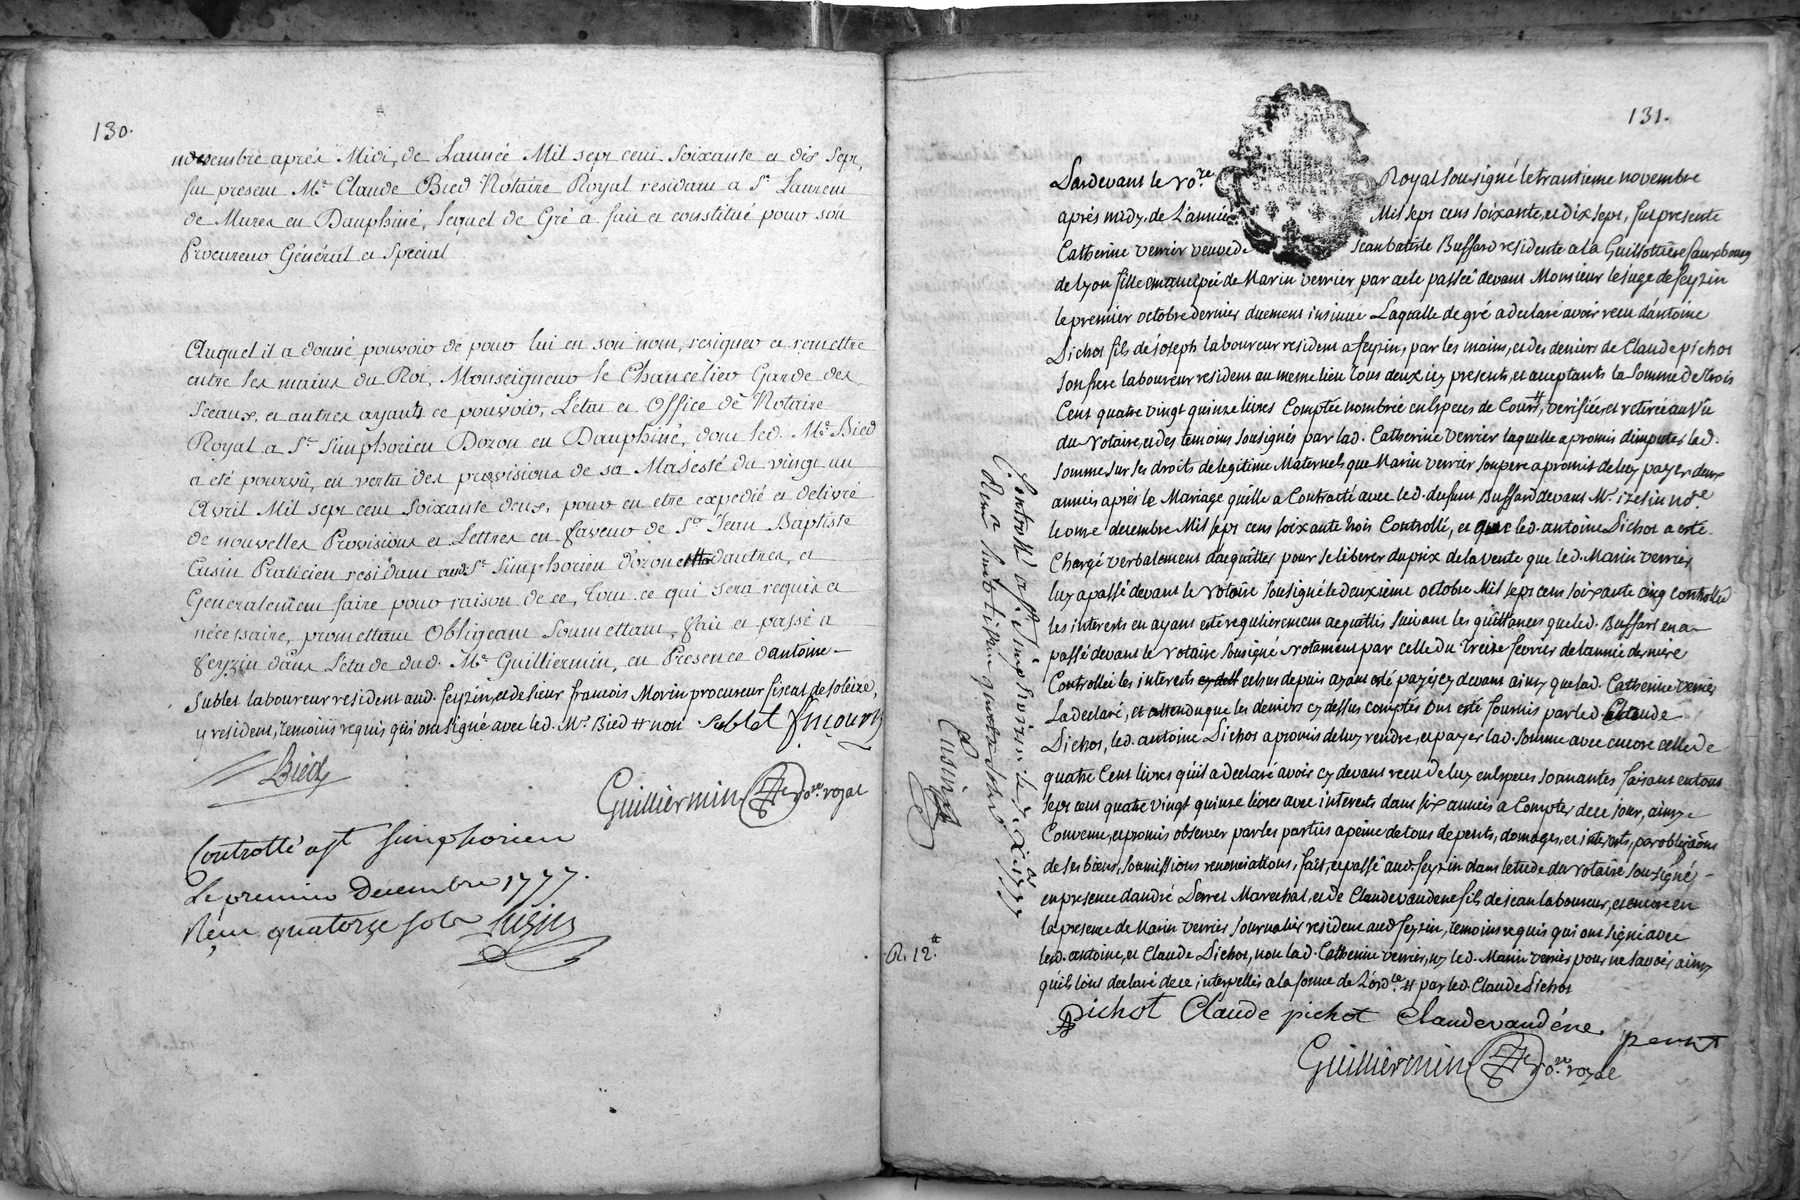 130.
novembre aprés Midi, de Lannée Mil sept cent soixante et dix sept,
fut present Me. Claude Bied Notaire Royal residant a St. Laurent
de Mures en Dauphiné, lequel de Gré a fait et constitué pour son
Procureur Général et Special
Auquel il a donné pouvoir de pour lui en son nom, resigner et remettre
entre les mains du Roi, Monseigneur le Chancelier Garde des
Sceaux, et autres ayants ce pouvoir, Letat et Office de Notaire
Royal a St. Simphorien Dozon en Dauphiné, dont led. Me. Bied
a été pourvû, en vertu des provisions de sa Majesté du vingt un
Avril Mil sept cent soixante deux, pour en etre expedié et delivré
de nouvelles Provisions et Lettres en faveur de Sr. Jean Baptiste
Cusin Praticien residant aud. St. Simphorien D'ozon dautres, et
Generalement faire pour raison de ce, tout ce qui sera requis et
nécessaire, promettant Obligeant Soumettant, fait et passé a
feyzin dans letude dud. Me. Guilliermin, en Presence dantoine
Sublet laboureur resident aud. feyzin, et de sieur francois Morin procureur fiscal de soleize,
y resident, temoins requis qui ont signé avec led. Me. Bied # non Sublet
Bied
Guilliermin no.re royal
Controllé a St simphorien
Le premier Decembre 1777.
Reçu quatorze sols
131.
Pardevant le no.re Royal soussigné le trantieme novembre
aprés midy, de L'année Mil sept cens soixante, et dix sept, fut presente
Catherine verrier veuve de Jean batiste Buffard residente a la Guillotiere fauxbourg
de Lyon fille emancipée de Marin verrier par acte passeé devant Monsieur le juge de feyzin
le premier octobre dernier duement insinue Laquelle de gré a declaré avoir recu d'antoine
Pichot fils de joseph laboureur resident a feyzin, par les mains, et des deniers de Claude pichot
son frere laboureur resident au meme lieu tous deux icy presents, et acceptants la somme de trois
Cent quatre vingt quinze livres Comptée nombrée en Especes de Cours #, verifiée, et retirée au vû
du Notaire, et des temoins soussignés par lad. Catherine verrier laquelle a promis d'imputer lad.
somme sur ses droits de legitime Maternels que Marin verrier son pere a promis de luy payer deux
années aprés le Mariage qu'elle a Contracté avec led. defunt Buffard devant Me. no.re
le onze decembre Mil sept cens soixante trois Controllé, et que led. antoine Pichot a esté
Chargé verbalement d'acquitter pour se liberer du prix de la vente que led. Marin verrier
luy a passé devant le Notaire soussigné le deuxieme octobre Mil sept cens soixante cinq controllée
les interests en ayant esté regulierement acquittés suivant les quittances que led. Buffard en a
passé devant le Notaire soussigné notament par celle du treize fevrier de l'année derniere
Controllée les interests echus depuis ayant eté payés cy devant ainsy que lad. Catherine verrier
La declaré, et attendu que les deniers cy dessus comptés ont esté fournis par led Claude
Pichot, led. antoine Pichot a promis de luy rendre, et payer lad. somme avec encore celle de
quatre Cent livres qu'il a declaré avoir cy devant recu de luy en Especes sonantes faisant en tout
sept cent quatre vingt quinze livres avec interests dans six années a Compter de ce jour, ainsy
Convenu, et promis observer par les parties a peine de tous depents, domages, et interests, par obligâons
de ses biens, soumissions renonciations, fait, et passé aud. feyzin dans letude du Notaire soussigné
en presence d'andré Perret Marechal, et de Claude vaudene fils de jean laboureur, et encore en
la presence de Marin verrier journalier resident aud feyzin, temoins requis qui ont signé avec
led. antoine, et Claude Pichot, non lad. Catherine verrier, ny led. Marin verrier pour ne savoir ainsy
qu'ils l'ont declaré de ce interpellés a la forme de L'ord.ce # par led. Claude Pichot
A Pichot Claude pichot Claudevaudéne. peret
Guilliermin no.re royal
Controllé a St. Simphorien le
Cusin
R. 12.#